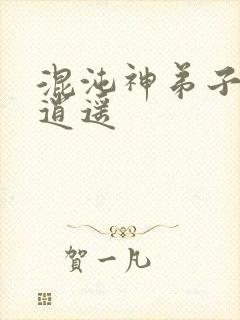 混沌神弟子
逍遥
賀一凡